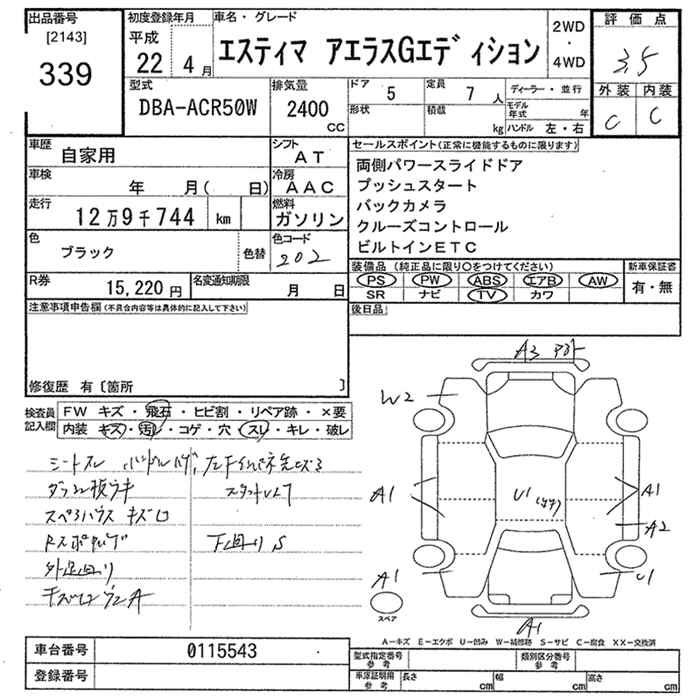 出品番号 初度登録年月 車名・グレード 2WD・4WD 評価点
[2143] 平成 エスティマ アエラスGエディション 3.5
339 22 4月 外装 内装
型式 排気量 ドア 5 定員 7人 ディーラー・並行 C C
DBA-ACR50W 2400 cc 形状 積載 kg モデル年式 年 ハンドル 左・右
車歴 自家用 シフト AT セールスポイント(正常に機能するものに限ります)
車検 年 月( 日) 冷房 AAC 両側パワースライドドア
走行 12万9千744 km 燃料 ガソリン プッシュスタート
バックカメラ
色 ブラック 色替 色コード 202 クルーズコントロール
ビルトインETC
R券 15,220円 名変通知期限 月 日 装備品 (純正品に限り○をつけてください) 新車保証書
PS PW ABS エアB AW 有・無
SR ナビ TV カワ
注意事項申告欄(不具合内容等は具体的に記入して下さい) 後日品
修復歴 有〔箇所 〕
検査員記入欄 FW キズ・飛石・ヒビ割・リペア跡・×要
内装 キズ・汚レ・コゲ・穴・スレ・キレ・破レ
A3
W2
シートスレ
A1 U1 A1
A2
下回りS
A1 U1
スペア
A1
A-キズ E-エクボ U-凹み W-補修跡 S-サビ C-腐食 XX-交換済
車台番号 0115543 型式指定番号 参考 類別区分番号 参考
登録番号 車庫証明用 参考 長さ cm 幅 cm 高さ cm